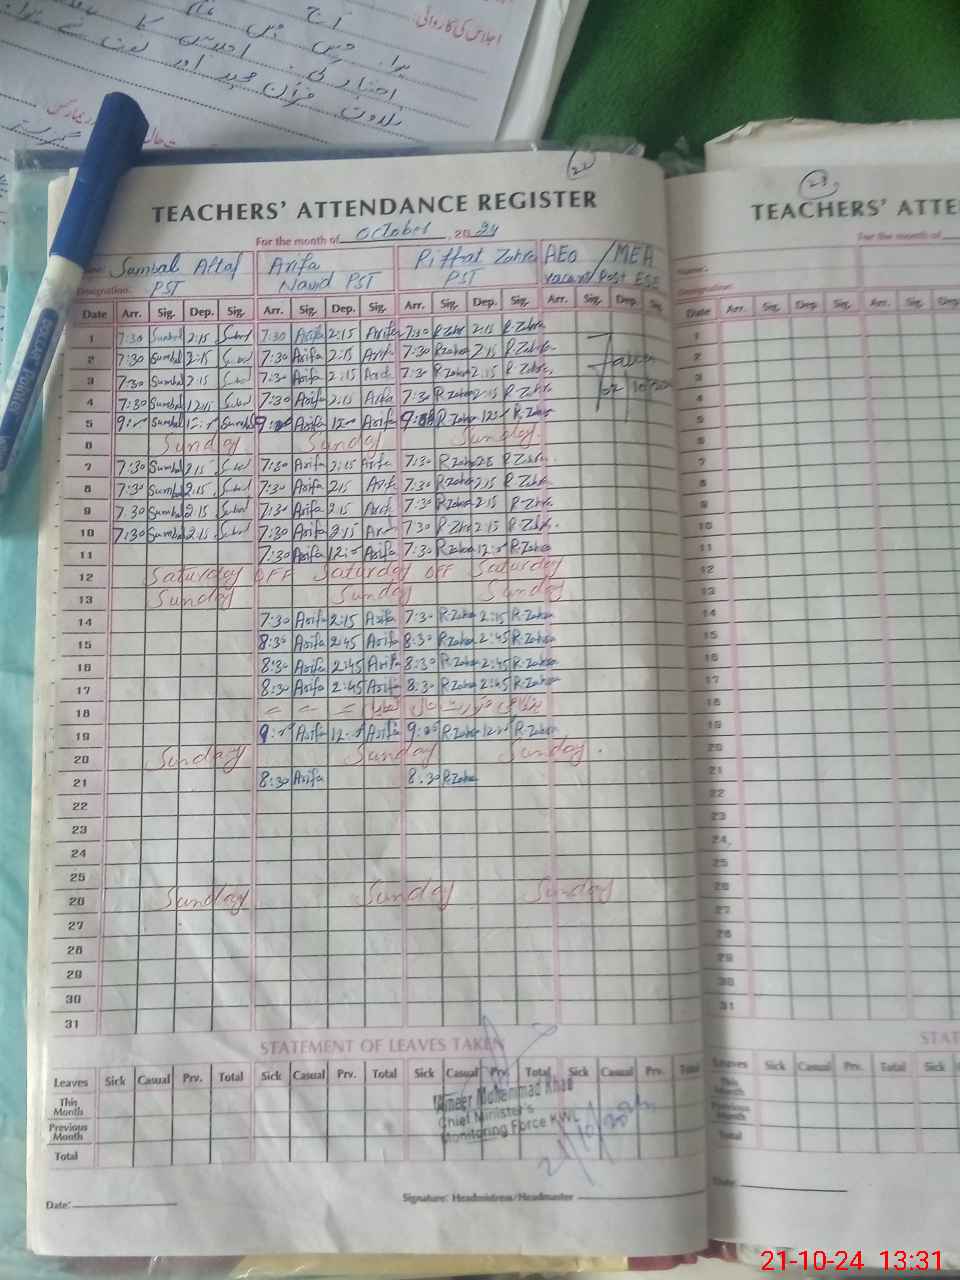 اجلاس کی کارروائی
22
TEACHERS' ATTENDANCE REGISTER
For the month of October, 2024
Name: Sumbal Altaf Arifa Riffat Zahra AEO / MEA
Designation: PST Navid PST PST Vacant Post ESE
Date Arr. Sig. Dep. Sig. Arr. Sig. Dep. Sig. Arr. Sig. Dep. Sig. Arr. Sig. Dep. Sig.
1 7:30 Sumbal 2:15 Sumbal 7:30 Arifa 2:15 Arifa 7:30 R.Zahra 2:15 R.Zahra
2 7:30 Sumbal 2:15 Sumbal 7:30 Arifa 2:15 Arifa 7:30 R.Zahra 2:15 R.Zahra
3 7:30 Sumbal 2:15 Sumbal 7:30 Arifa 2:15 Arifa 7:30 R.Zahra 2:15 R.Zahra
4 7:30 Sumbal 12:15 Sumbal 7:30 Arifa 2:15 Arifa 7:30 R.Zahra 2:15 R.Zahra
5 9:00 Sumbal 12:00 Sumbal 9:00 Arifa 12:00 Arifa 9:00 R.Zahra 12:00 R.Zahra
6 Sunday Sunday Sunday
7 7:30 Sumbal 2:15 Sumbal 7:30 Arifa 2:15 Arifa 7:30 R.Zahra 2:15 R.Zahra
8 7:30 Sumbal 2:15 Sumbal 7:30 Arifa 2:15 Arifa 7:30 R.Zahra 2:15 R.Zahra
9 7:30 Sumbal 2:15 Sumbal 7:30 Arifa 2:15 Arifa 7:30 R.Zahra 2:15 R.Zahra
10 7:30 Sumbal 2:15 Sumbal 7:30 Arifa 2:15 Arifa 7:30 R.Zahra 2:15 R.Zahra
11 7:30 Arifa 12:00 Arifa 7:30 R.Zahra 12:00 R.Zahra
12 Saturday OFF Saturday OFF Saturday
13 Sunday Sunday Sunday
14 7:30 Arifa 2:15 Arifa 7:30 R.Zahra 2:15 R.Zahra
15 8:30 Arifa 2:45 Arifa 8:30 R.Zahra 2:45 R.Zahra
16 8:30 Arifa 2:45 Arifa 8:30 R.Zahra 2:45 R.Zahra
17 8:30 Arifa 2:45 Arifa 8:30 R.Zahra 2:45 R.Zahra
18
19 9:00 Arifa 12:00 Arifa 9:00 R.Zahra 12:00 R.Zahra
20 Sunday Sunday Sunday
21 8:30 Arifa 8:30 R.Zahra
22
23
24
25
26 Sunday Sunday Sunday
27
28
29
30
31
STATEMENT OF LEAVES TAKEN
Leaves Sick Casual Prv. Total Sick Casual Prv. Total Sick Casual Prv. Total Sick Casual Prv. Total
This Month
Previous Month
Total
Ameer Muhammad Khan
Chief Minister's
Monitoring Force KWL
21/10/2024
Date: Signature: Headmistress/Headmaster
23
TEACHERS' ATTE
For the month of
Name:
Designation:
Date Arr. Sig. Dep. Sig. Arr. Sig. Dep
1
2
3
4
5
6
7
8
9
10
11
12
13
14
15
16
17
18
19
20
21
22
23
24
25
26
27
28
29
30
31
STAT
Leaves Sick Casual Prv. Total Sick Casual
This Month
Previous Month
Total
Date:
DOLLAR Pointer
21-10-24 13:31